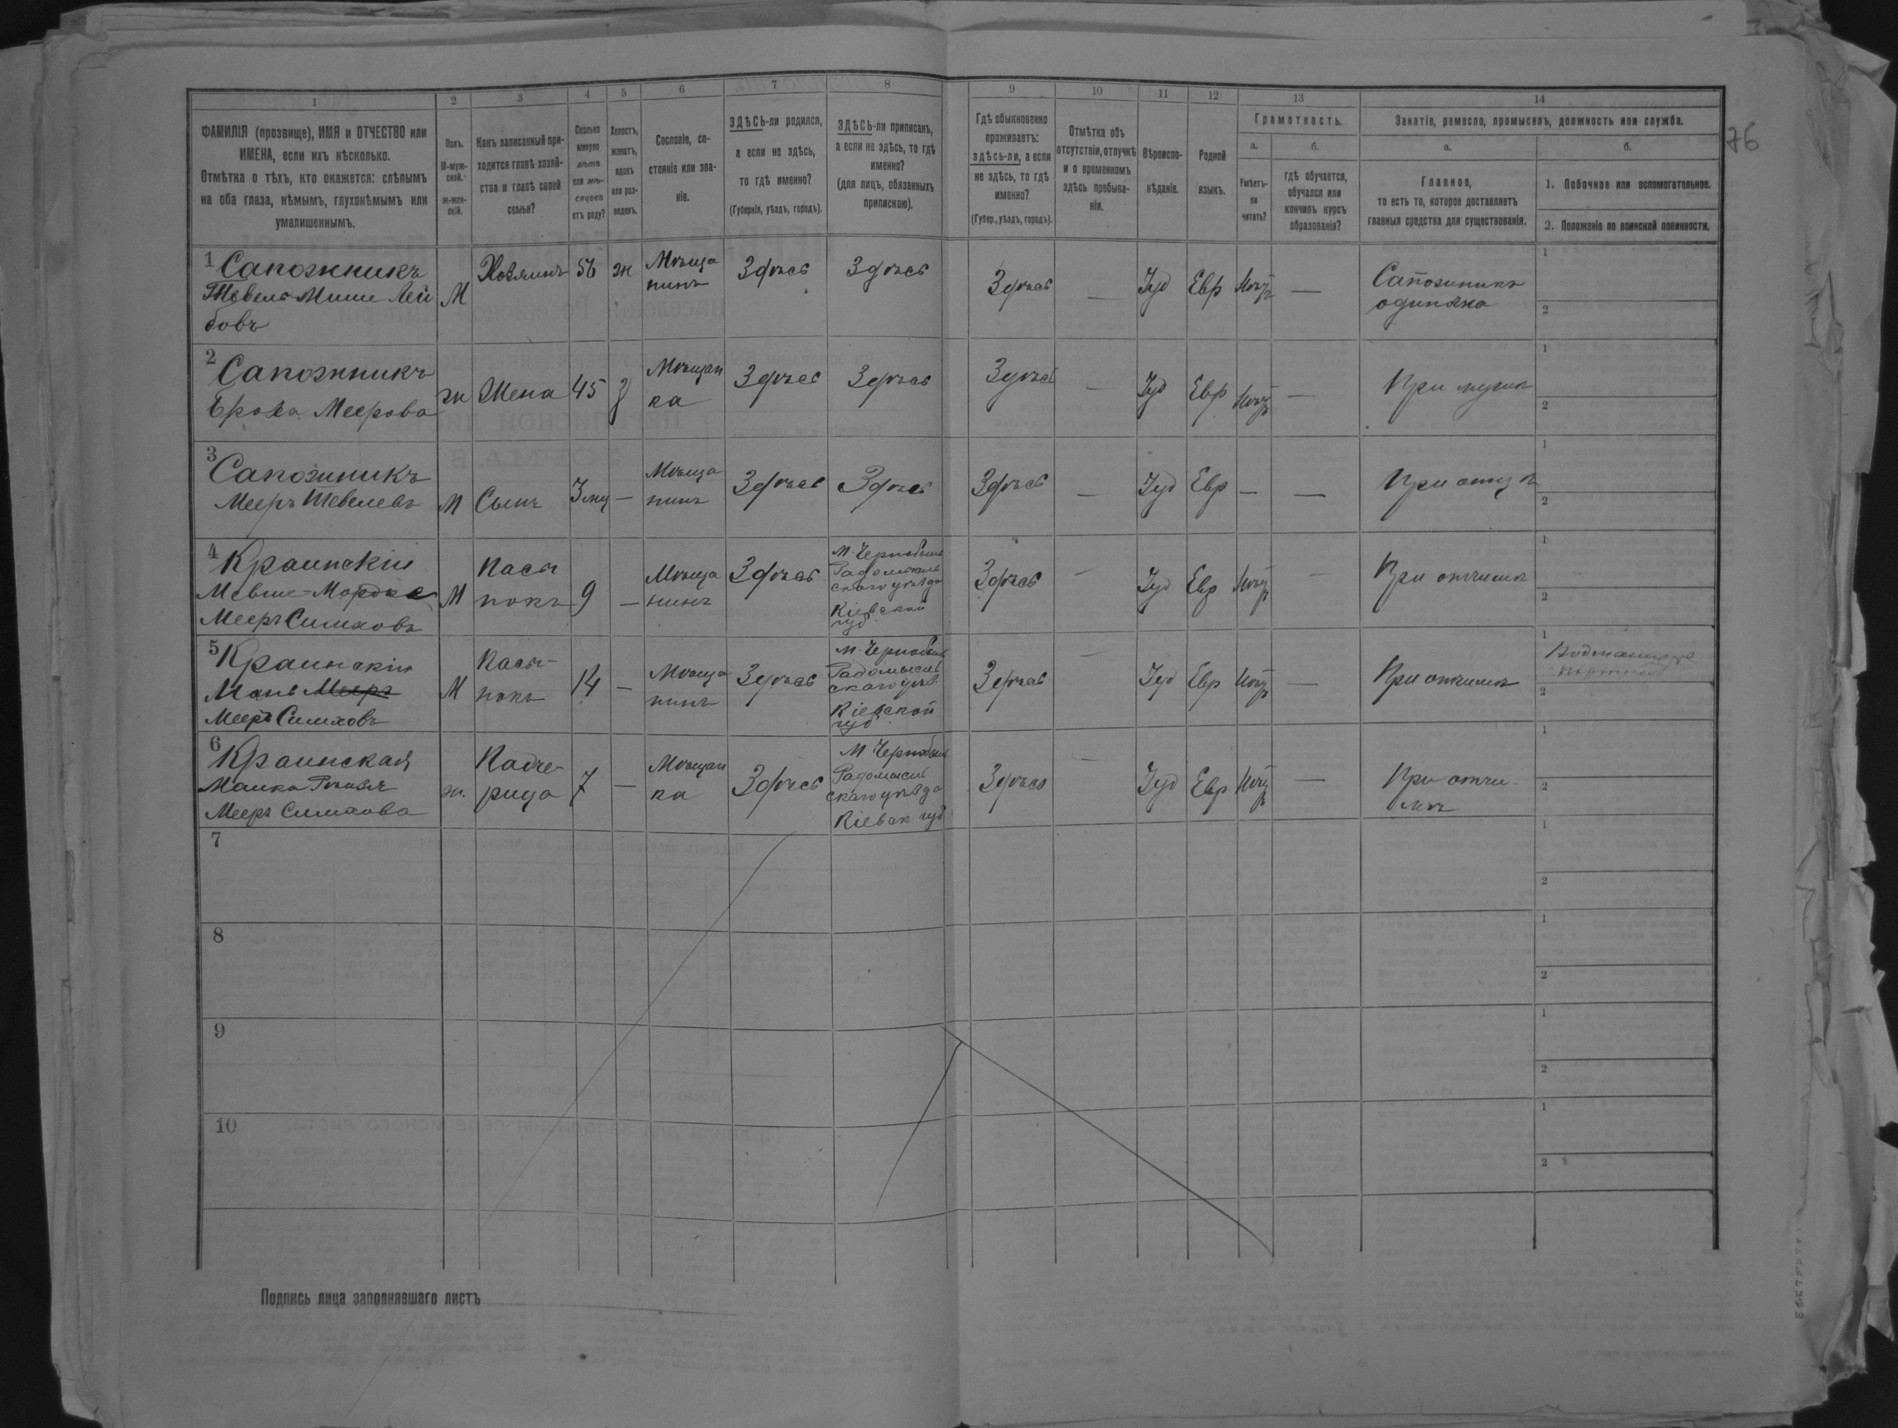 76
1 2 3 4 5 6 7 8 9 10 11 12 13 14
ФАМИЛІЯ (прозвище), ИМЯ и ОТЧЕСТВО или
ИМЕНА, если ихъ нѣсколько.
Отмѣтка о тѣхъ, кто окажется: слѣпымъ
на оба глаза, нѣмымъ, глухонѣмымъ или
умалишеннымъ.
Полъ.
М-муж-
ской.
ж-жен-
скій.
Какъ записанный при-
ходится главѣ хозяй-
ства и главѣ своей
семьи?
Сколько
минуло
лѣтъ
или мѣ-
сяцевъ
отъ роду?
Холостъ,
женатъ,
вдовъ
или раз-
веденъ.
Сословіе, со-
стояніе или зва-
ніе.
ЗДѢСЬ-ли родился,
а если не здѣсь,
то гдѣ именно?
(Губернія, уѣздъ, городъ).
ЗДѢСЬ-ли приписанъ,
а если не здѣсь, то гдѣ
именно?
(для лицъ, обязанныхъ
припискою).
Гдѣ обыкновенно
проживаетъ:
здѣсь-ли, а если
не здѣсь, то гдѣ
именно?
(Губер., уѣздъ, городъ).
Отмѣтка объ
отсутствіи, отлучкѣ
и о временномъ
здѣсь пребыва-
ніи.
Вѣроиспо-
вѣданіе.
Родной
языкъ.
Грамотность.
а.
Умѣетъ-
ли
читать?
б.
гдѣ обучается,
обучался или
кончилъ курсъ
образованія?
Занятіе, ремесло, промыселъ, должность или служба.
а.
Главное,
то есть то, которое доставляетъ
главныя средства для существованія.
б.
1. Побочное или вспомогательное.
2. Положеніе по воинской повинности.
1 Сапожникъ
Лей
бовъ
М
Хозяинъ
56
ж
Мѣща
нинъ
Здѣсь
Здѣсь
Здѣсь
—
Іуд
Евр
—
Сапожникъ
1
2
2 Сапожникъ
Меерова
ж
Жена
45
З
Мѣщан
ка
Здѣсь
Здѣсь
Здѣсь
—
Іуд
Евр
—
При мужѣ
1
2
3 Сапожникъ
Мееръ Шевелевъ
М
Сынъ
—
Мѣща
нинъ
Здѣсь
Здѣсь
Здѣсь
—
Іуд
Евр
—
—
При отцѣ
1
2
4 Краинскій
Мовше-Мордко
Мееръ Симховъ
М
Пасы
нокъ
9
—
Мѣща
нинъ
Здѣсь
М. Чернобыль
Радомысль
скаго уѣзда
Кіевской
губ
Здѣсь
—
Іуд
Евр
При отчимѣ
1
2
5 Краинскій
Мееръ Симховъ
М
Пасы-
нокъ
14
—
Мѣща
нинъ
Здѣсь
М. Чернобыль
Радомысль
скаго уѣз
Кіевской
губ
Здѣсь
—
Іуд
Евр
—
При отчимѣ
1
2
6 Краинская
Мееръ Симхова
ж.
Падче-
рица
7
—
Мѣщан
ка
Здѣсь
М Чернобыль
Радомысль
скаго уѣзда
Кіевск. губ
Здѣсь
—
Іуд
Евр
—
При отчи-
мѣ
1
2
7
1
2
8
1
2
9
1
2
10
1
2
Подпись лица заполнявшаго листъ